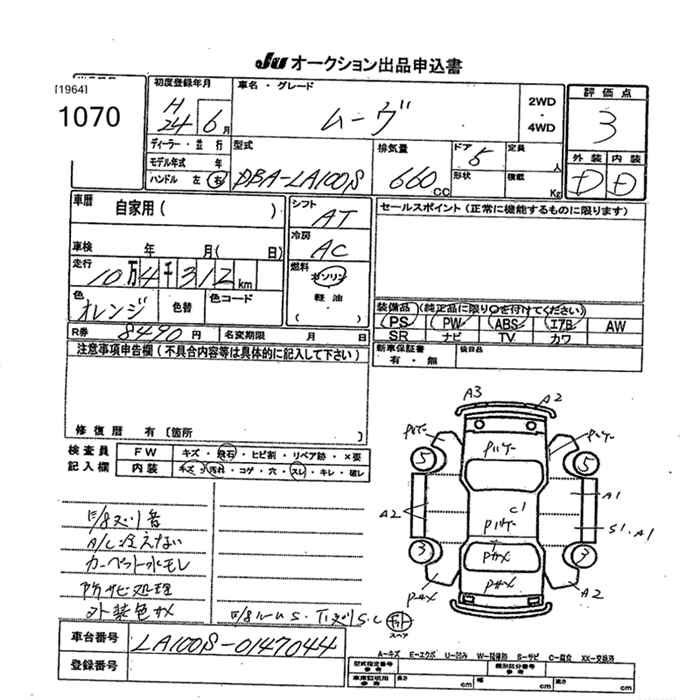 JU オークション出品申込書
[1964]
1070
初度登録年月
H24 6月
車名・グレード
ムーヴ
2WD
・
4WD
評価点
3
ディーラー・並行
モデル年式 年
ハンドル 左 右
型式
DBA-LA100S
排気量
660 CC
ドア 5
形状
定員 人
積載 Kg
外装 内装
D D
車歴 自家用( )
車検 年 月( 日)
走行
10万4千312km
色
オレンジ
色替
色コード
シフト
AT
冷房
AC
燃料
ガソリン
軽油・
( )
セールスポイント(正常に機能するものに限ります)
装備品 (純正品に限り○を付けてください)
PS PW ABS エアB AW
SR ナビ TV カワ
新車保証書
有・無
後日品
R券 8490円 名変期限 月 日
注意事項申告欄(不具合内容等は具体的に記入して下さい)
修復歴 有〔箇所 〕
検査員
記入欄
FW キズ・飛石・ヒビ割・リペア跡・×要
内装 キズ・汚れ・コゲ・穴・スレ・キレ・破レ
A/C冷えない
カーペット水モレ
防サビ処理
外装色カメ
A3 A2
5 5
A2
A1
S1.A1
C1
3 3
A2
スペア
車台番号 LA100S-0147044
登録番号
A-キズ E-エクボ U-凹み W-補修跡 S-サビ C-腐食 XX-交換済
型式指定番号
参考
類別区分番号
参考
車庫証明用
参考
長さ cm 幅 cm 高さ cm